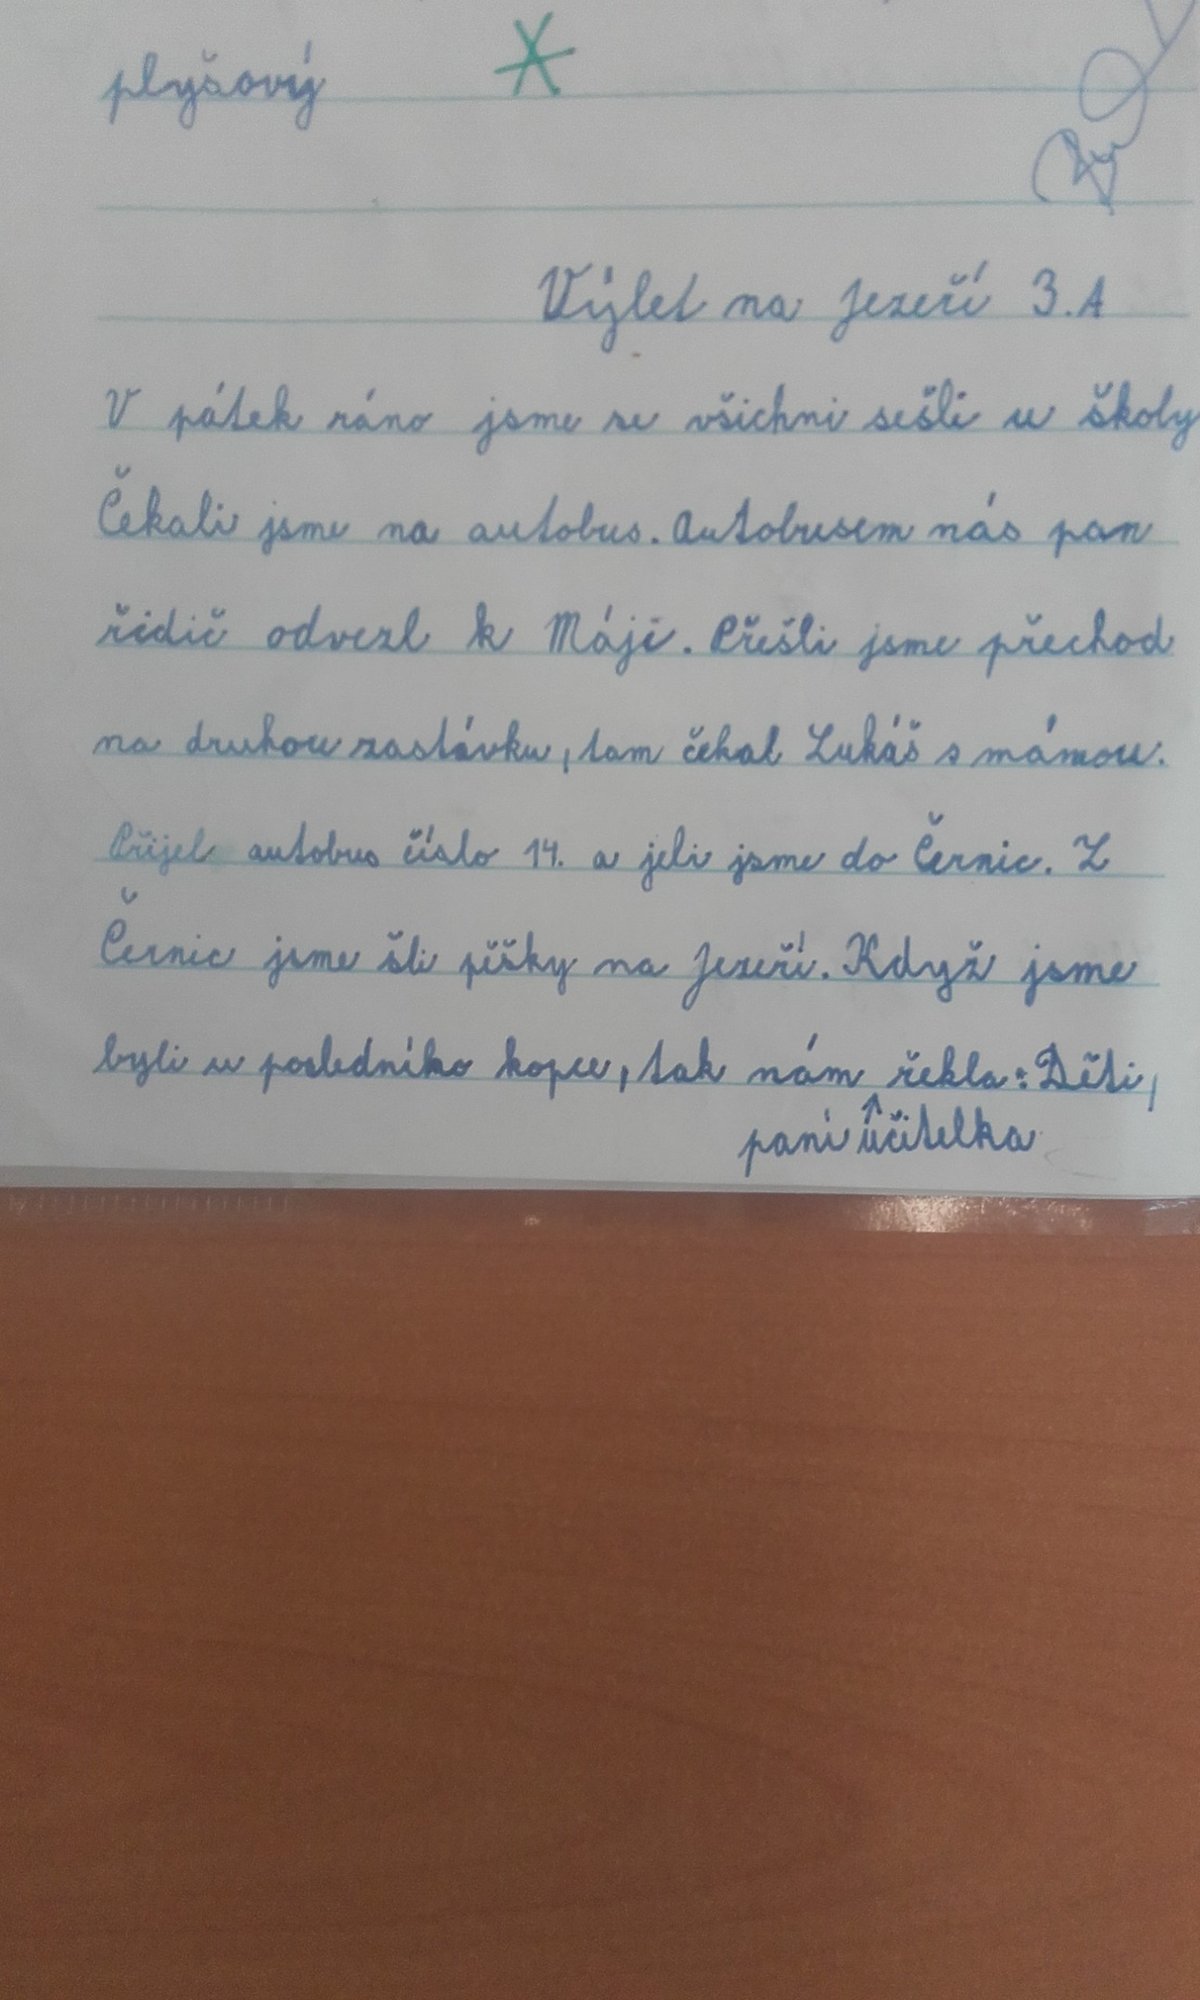 plyšový
Výlet na Jezeří 3.A
V pátek ráno jsme se všichni sešli u školy
Čekali jsme na autobus. Autobusem nás pan
řidič odvezl k Máji. Přešli jsme přechod
na druhou zastávku, tam čekal Lukáš s mámou.
Přijel autobus číslo 14. a jeli jsme do Černic. Z
Černic jsme šli pěšky na Jezeří. Když jsme
byli u posledního kopce, tak nám řekla: Děti,
paní učitelka